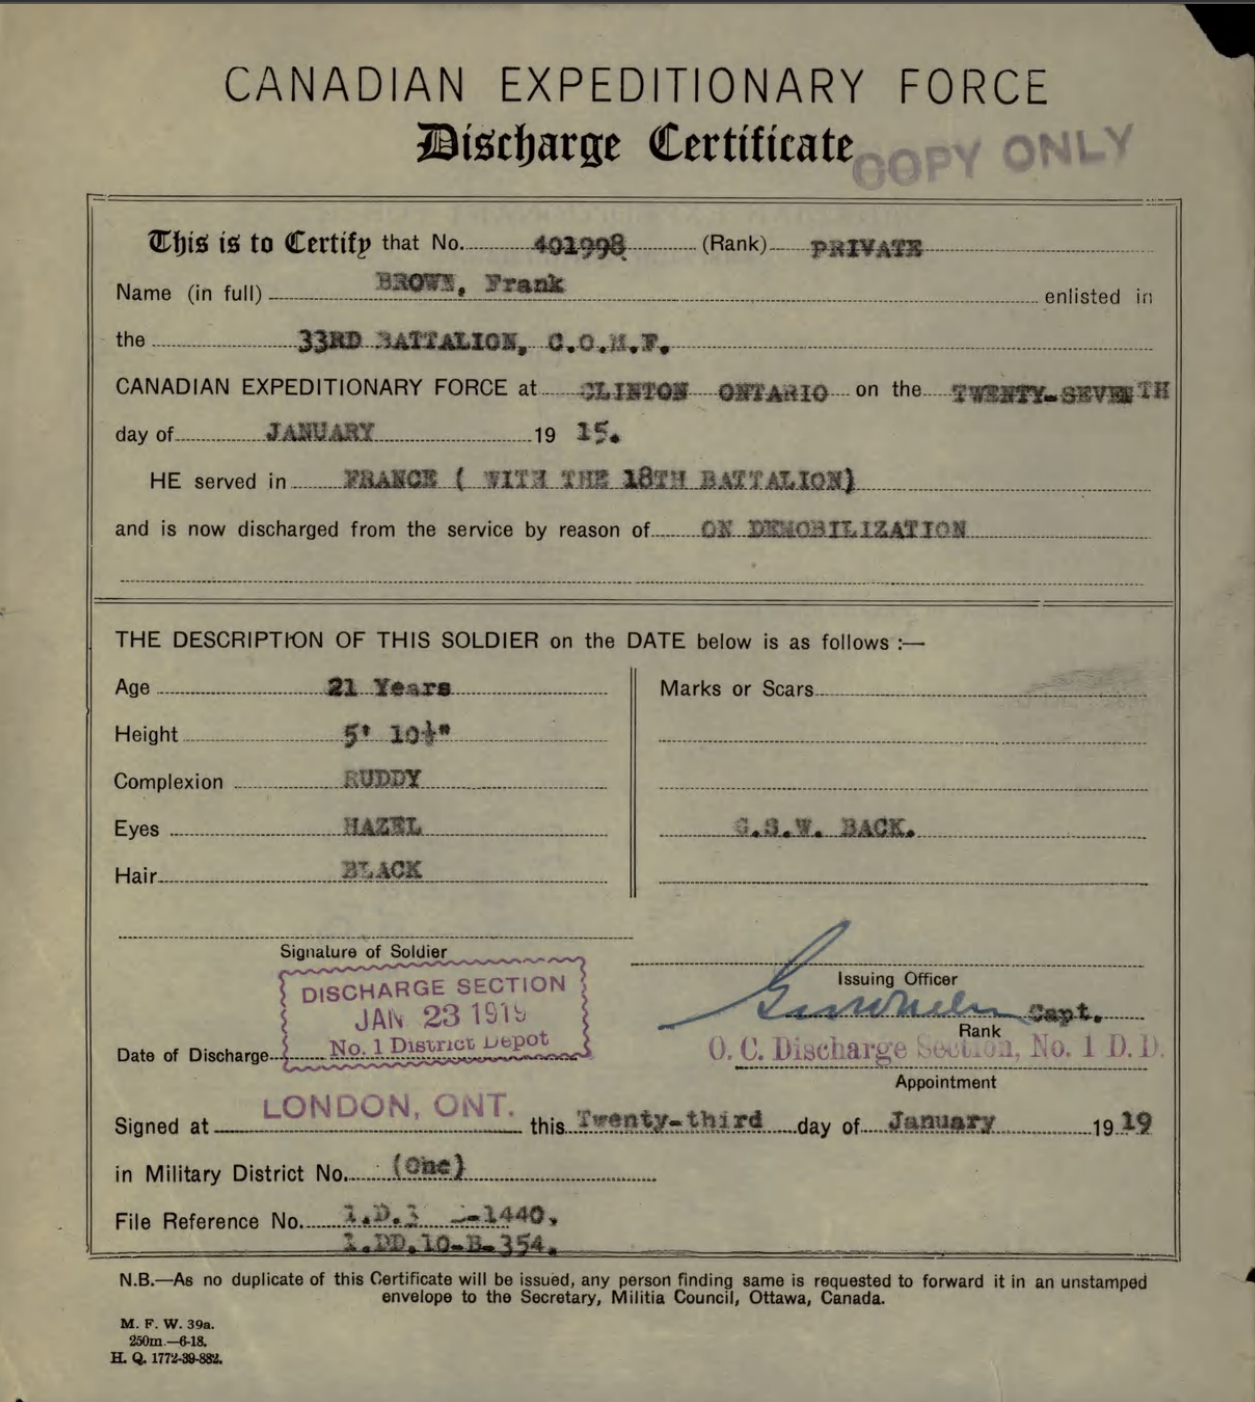 CANADIAN EXPEDITIONARY FORCE
Discharge Certificate
COPY ONLY
This is to Certify that No. 401998 (Rank) PRIVATE
Name (in full) BROWN, Frank enlisted in
the 33RD BATTALION, C.O.M.F.
CANADIAN EXPEDITIONARY FORCE at CLINTON ONTARIO on the TWENTY-SEVENTH
day of JANUARY 19 15.
HE served in FRANCE ( WITH THE 18TH BATTALION)
and is now discharged from the service by reason of ON DEMOBILIZATION
THE DESCRIPTION OF THIS SOLDIER on the DATE below is as follows :—
Age 21 Years
Height 5' 10½"
Complexion RUDDY
Eyes HAZEL
Hair BLACK
Marks or Scars
G.S.W. BACK.
Signature of Soldier
Issuing Officer
Capt.
Rank
O. C. Discharge Section, No. 1 D. D.
Appointment
DISCHARGE SECTION
JAN 23 1919
No. 1 District Depot
Date of Discharge
Signed at LONDON, ONT. this Twenty-third day of January 19 19
in Military District No. (One)
File Reference No. -1440.
1.DD.10-B-354.
N.B.—As no duplicate of this Certificate will be issued, any person finding same is requested to forward it in an unstamped
envelope to the Secretary, Militia Council, Ottawa, Canada.
M. F. W. 39a.
250m.—6-18.
H. Q. 1772-39-882.